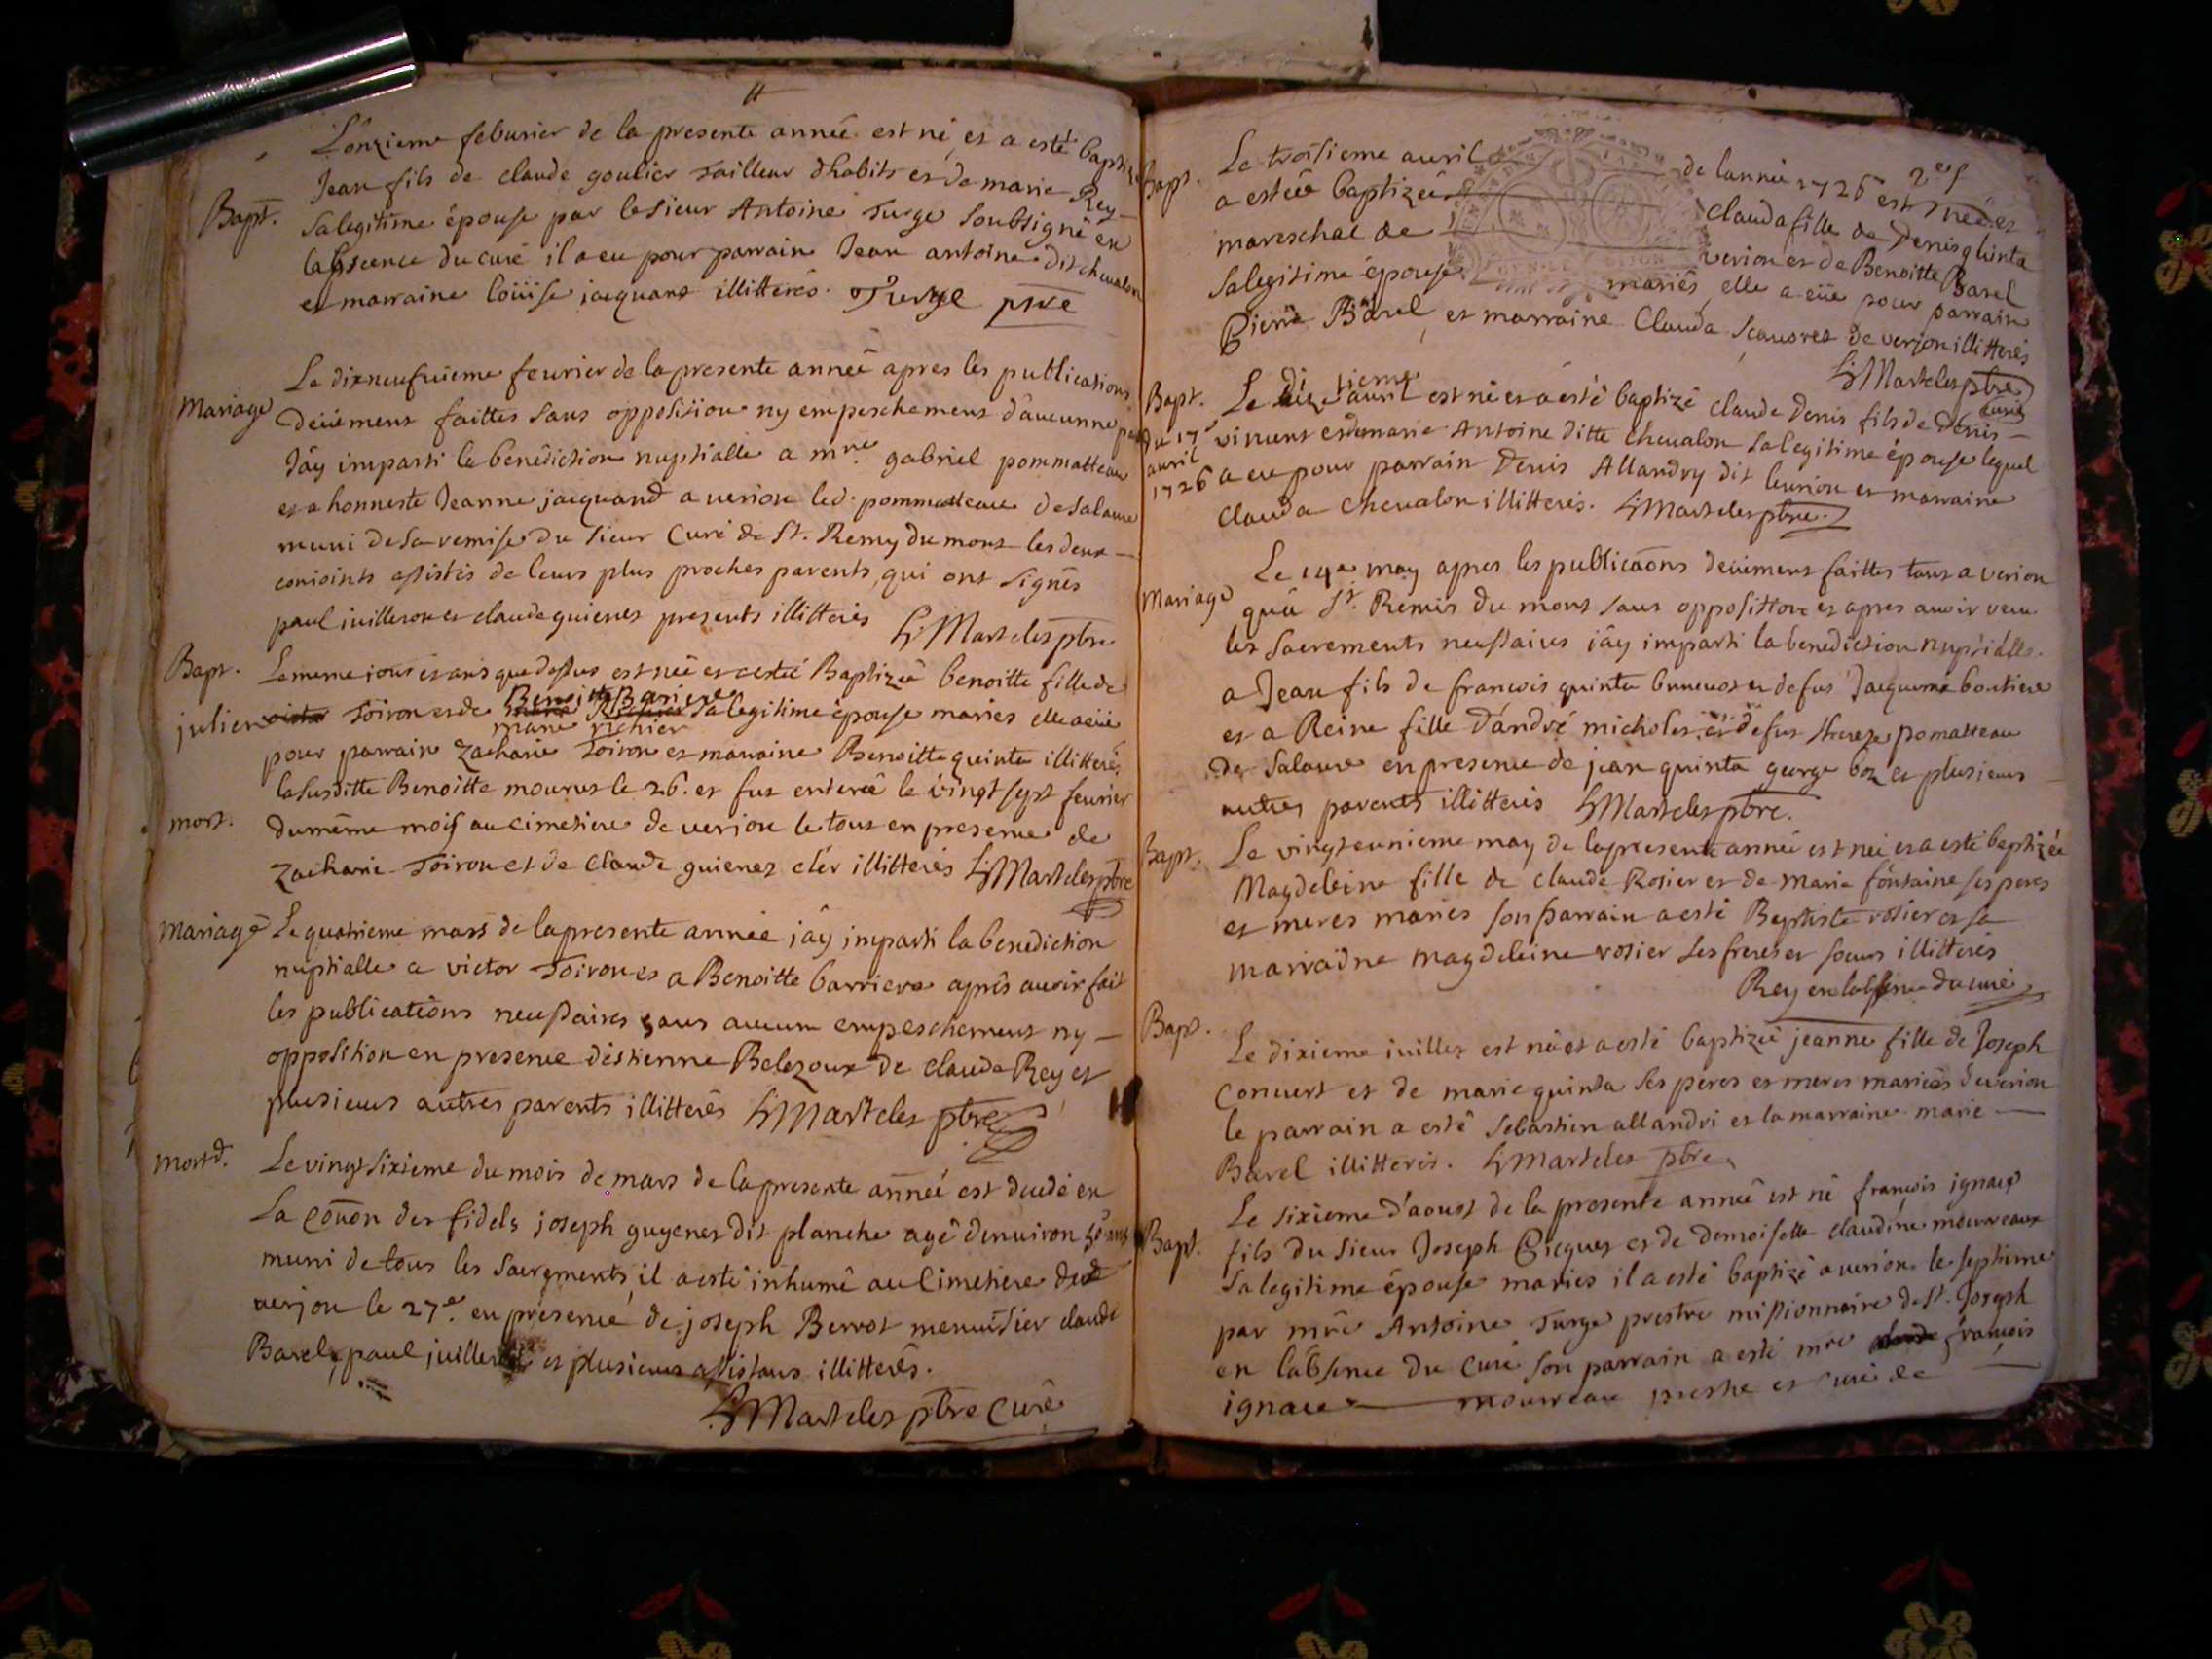 L'onzieme feburier de la presente année est né et a esté baptizé
Bapt.
Jean fils de claude goulier tailleur dhabits et de marie Rey
sa legitime épouse par le sieur Antoine Turge soubsigné en
labscence du curé il a eu pour parrain Jean antoine dit chevalon
et marraine loüise jacquand illitterés. Turge ptre
Mariage
Le dixneufvieme feurier de la presente année apres les publications
deüement faittes sans opposition ny empeschement d'aucunne part
J'ay imparti la benediction nuptialle a mre gabriel pommatteau
et a honneste Jeanne jacquand a verion led. pommatteau de Salavre
muni de sa remise du sieur Curé de St. Remy du mont les deux
conioints assistés de leurs plus proches parents, qui ont signés
paul iuilleron et claude guienet presents illitterés Marteles ptre
Bapt.
Le meme iour et an que dessus est née et a esteé Baptizeé benoitte fille de
julien Toiron et de Benoitte Bariere sa legitime épouse mariés elle a eüe
marie richier
pour parrain Zacharie Toiron et marraine Benoitte quinta illitterés
mort.
la susditte Benoitte mourut le 26. et fut enterrée le vingt sept feurier
du même mois au cimetiere de verjon le tout en presence de
Zacharie Toiron et de Claude guienet clér illitterés Marteles ptre
Mariage
Le quatrieme mars de la presente année j'ay imparti la benediction
nuptialle a victor Toiron et a Benoitte barriere aprés avoir fait
les publications necessaires sans aucun empeschement ny
opposition en presence d'estienne Belezoux de claude Rey et
plusieurs autres parents illitterés Marteles ptre
mort d.
Le vingt sixieme du mois de mars de la presente année est decedé en
La cōuōn des fidels joseph guyenet dit planche agé denuiron 50 ans
muni de tous les sacrements, il a esté inhumé au Cimetiere de
verjon le 27e. en presence de joseph Berrot menuisier claude
Barel, paul juilleron et plusieurs assistans illitterés.
Marteles ptre Curé
Bapt.
Le troisieme auril de lannée 1726 est née et
a esteé baptizeé Clauda fille de Denis quinta
mareschal de verion et de Benoitte Barel
sa legitime épouse mariés, elle a eüe pour parrain
Pierre Barel, et marraine Clauda de verjon illitterés
Marteles ptre
curé
Bapt.
du 17e
auril
1726
Le dixetieme auril est né et a esté baptizé claude Denis fils de Denis
vinent et de marie Antoine ditte Chevalon sa legitime épouse lequel
a eu pour parrain Denis Allandry dit leurion et marraine
Clauda Chevalon illitterés. Marteles ptre
Mariage
Le 14e may apres les publicaōns deüement faittes tans a verion
qu'a St. Remis du mont sans opposition et apres avoir receu
les sacrements necessaires j'ay imparti la benediction nuptialle
a Jean fils de francois quinta et de fut Jacquema boutiere
et a Reine fille d'andré micholet et de fut therese pomatteau
de Salavre en presence de jean quinta george boz et plusieurs
autres parents illitterés Marteles ptre.
Bapt.
Le vingt eunieme may de la presente année est née et a esté baptizée
Magdeleine fille de claude Rosier et de marie fontaine ses peres
et meres mariés son parrain a esté Baptiste rosier et sa
marraine magdeleine rosier ses freres et soeurs illitterés
Rey en labsence du curé
Bapt.
Le dixieme iuillet est née et a esté baptizée jeanne fille de Joseph
Convert et de marie quinta ses peres et meres mariés de verion
le parrain a esté Sebastien allandri et la marraine marie
Barel illitterés. Marteles ptre
Bapt.
Le sixieme d'aoust de la presente année est né francois ignace
fils du sieur Joseph Picquet et de Demoiselle claudine mouvreaux
sa legitime épouse mariés il a esté baptizé a verion le septieme
par mre Antoine Turge prestre missionnaire de St. Joseph
en l'absence du curé son parrain a esté mre françois
ignace mouvreau prestre et curé de